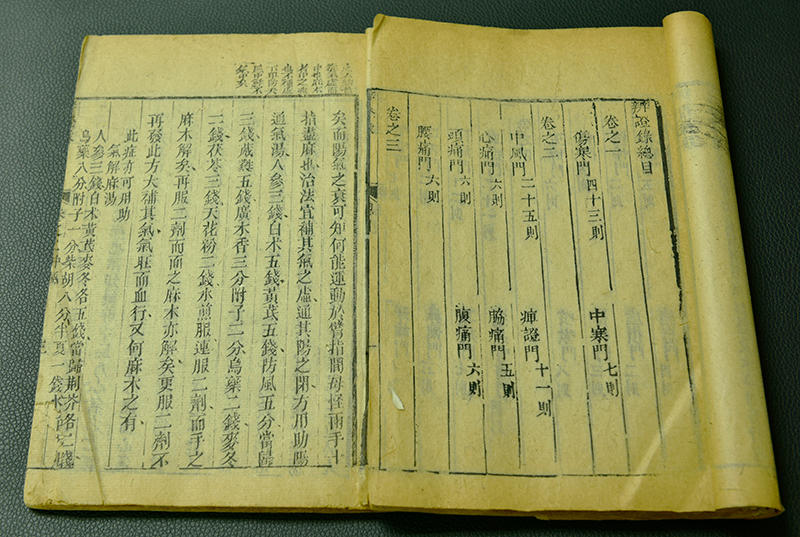 辨證錄總目
卷之一
傷寒門 四十三則 中寒門 七則
卷之二
中風門 二十五則 痺證門 十一則
心痛門 六則 脇痛門 五則
頭痛門 六則 腹痛門 六則
腰痛門 六則
卷之三
矣而陽氣之衰可知何能運動於臂指間毋怪兩手十
指盡麻也治法宜補其氣之虛通其陽之閉方用助陽
通氣湯人參三錢白术五錢黃芪五錢防風五分當歸
三錢葳蕤五錢廣木香三分附子二分烏藥二錢麥冬
二錢茯苓三錢天花粉二錢水煎服連服二劑而手之
麻木解矣再服二劑而面之麻木亦解矣更服二劑不
再發此方大補其氣氣旺而血行又何麻木之有
此症亦可用助
氣解麻湯
人參三錢白术黃芪麥冬各五錢當歸荊芥各二錢
烏藥八分附子一分柴胡八分半夏一錢水